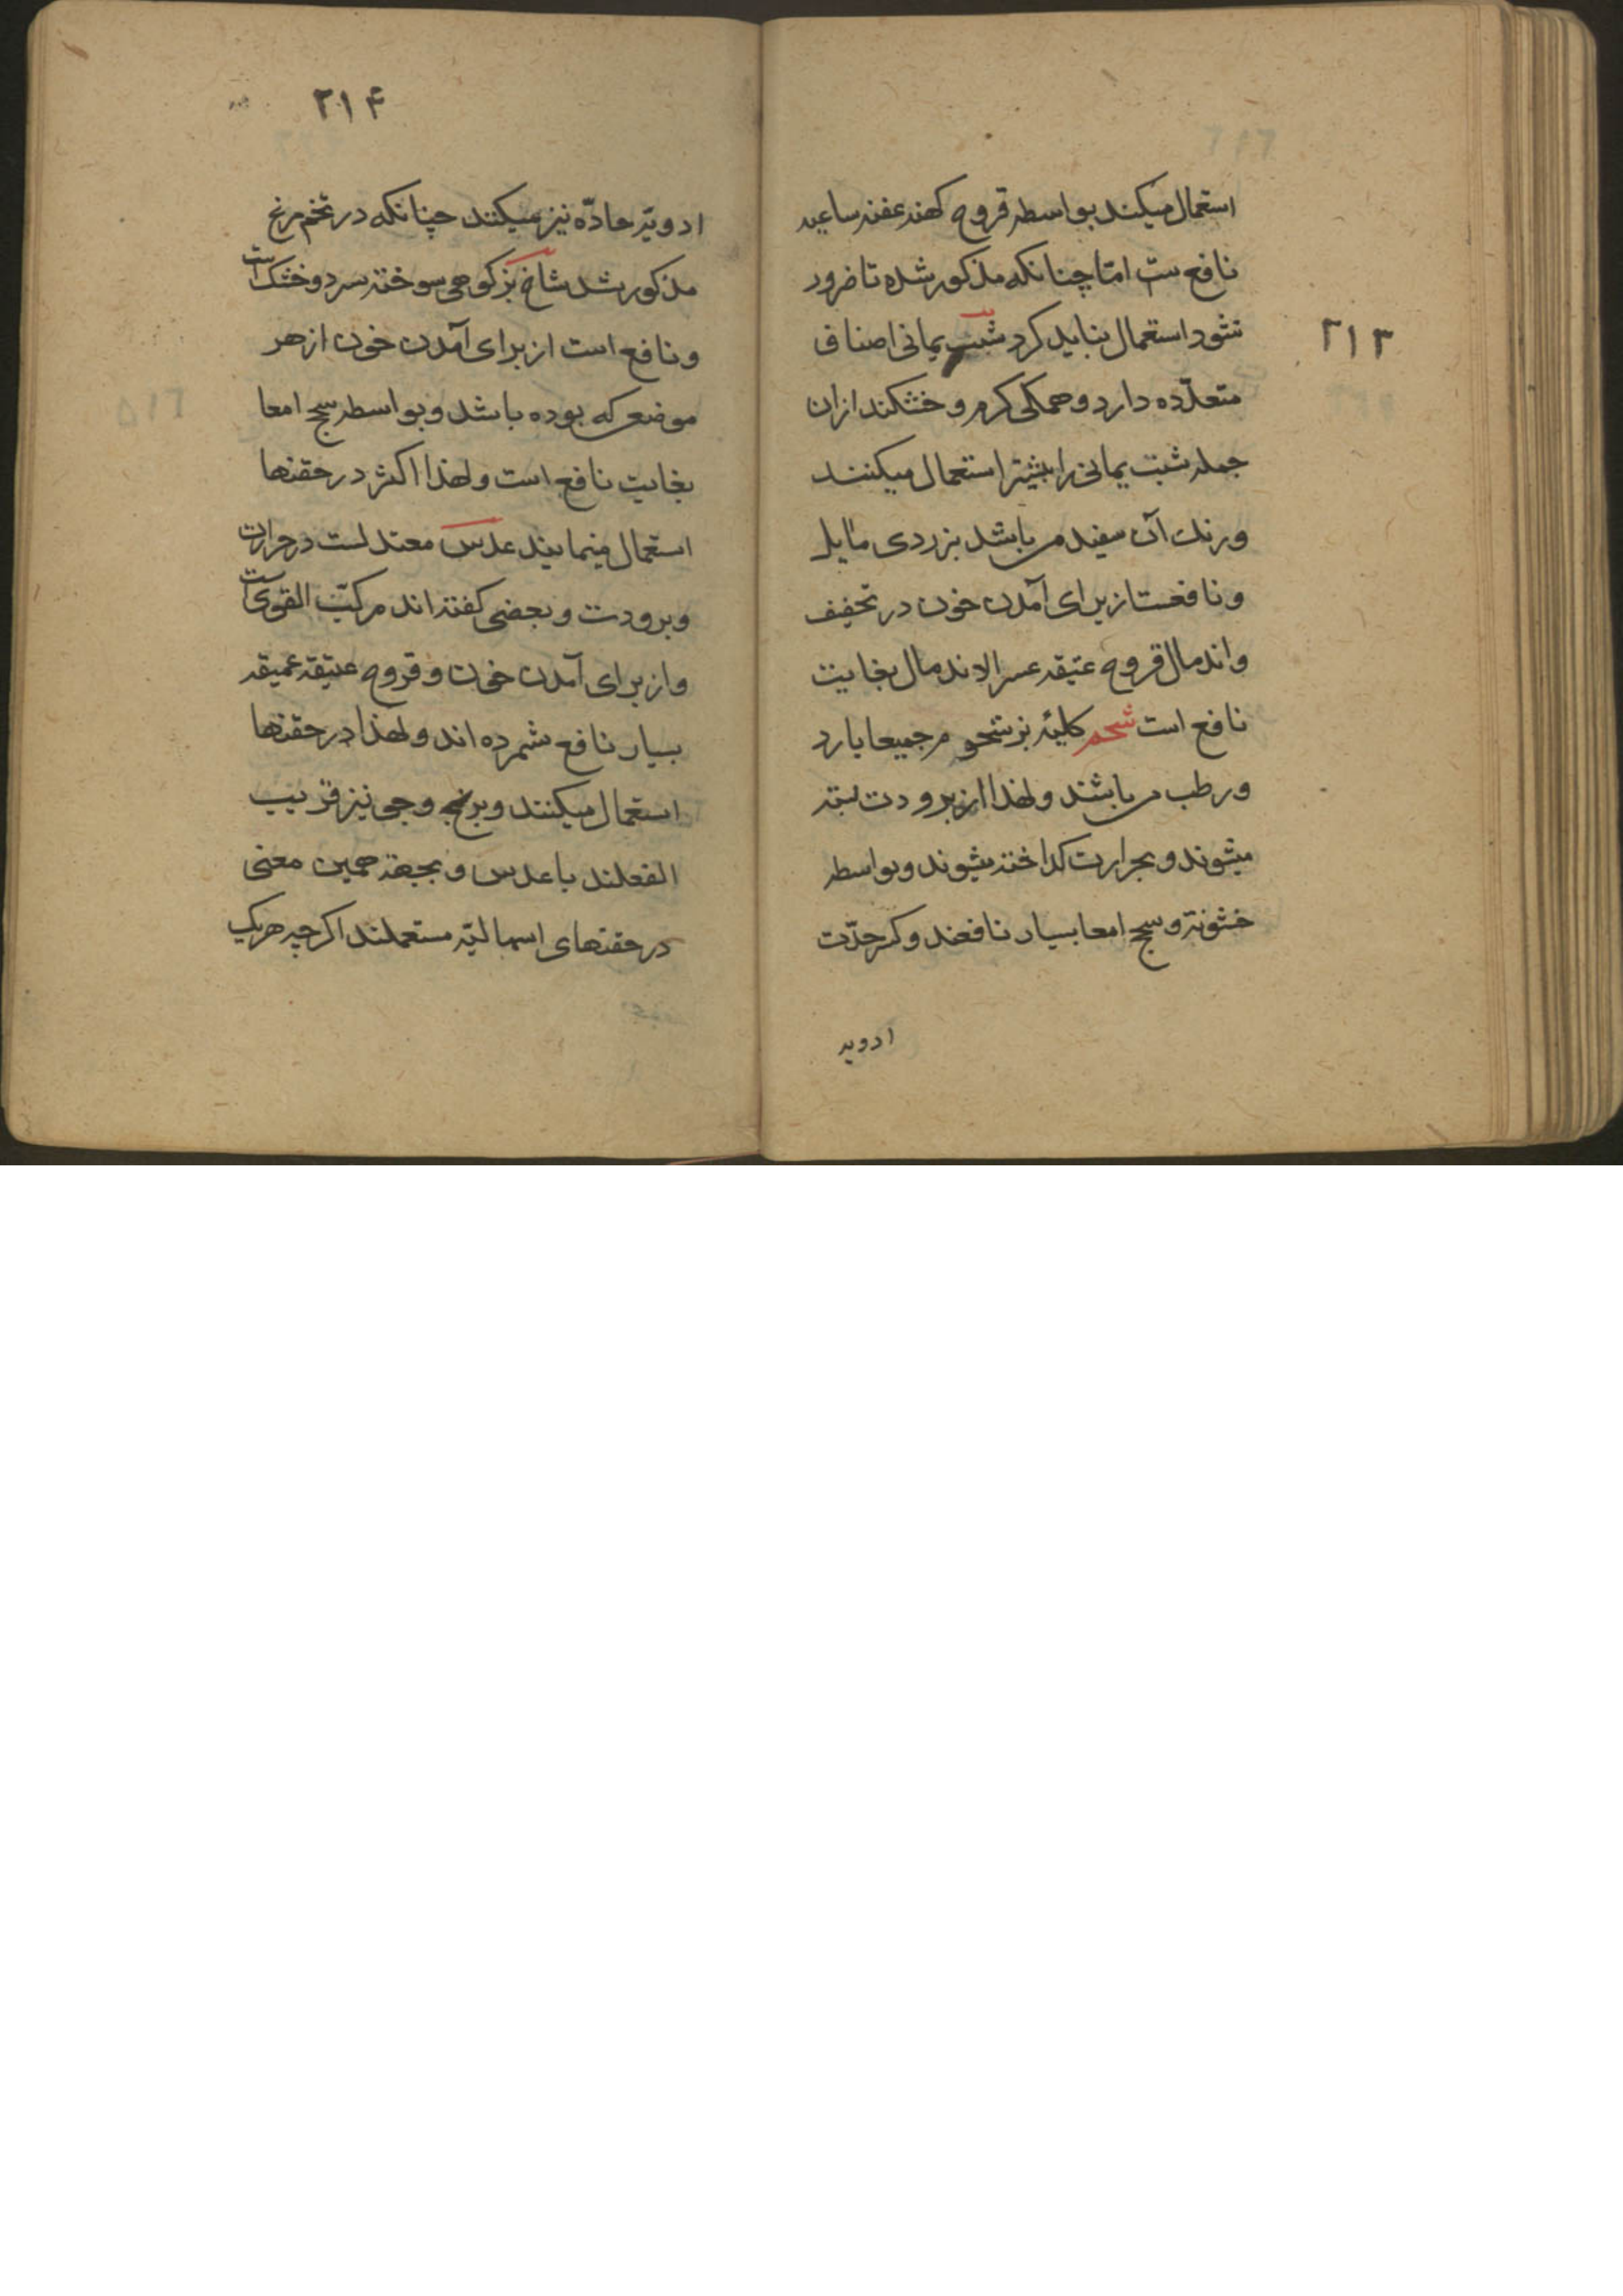 استعمال میکنند بواسطه قروح کهنه عفنه ساعیه
نافع ست امّا چنانکه مذکور شده تا ضرور
نشود استعمال نباید کرد شب یمانی اصناف
۲۱۳
متعدّده دارد و همکی کرم و خشکند ازان
جمله شب یمانی را بیشتر استعمال میکنند
و رنک آن سفید می باشد بزردی مایل
و نافعست از برای آمدن خون در تخفیف
و اندمال قروح عتیقه عسر الاندمال بغایت
نافع است شحم کلیۀ بز شحوم جمیعا بارد
و رطب می باشند و لهذا از برودت بسته
میشوند و بحرارت کداخته میشوند و بواسطه
خشونة و سحج امعا بسیار نافعند و کسر حدّت
ادویه
۲۱۴
ادویّه حادّه نیز میکنند چنانکه در تخم مرغ
مذکور شد شاخ بز کوهی سوخته سرد و خشک است
و نافع است از برای آمدن خون از هر
موضعی که بوده باشد و بواسطه سحج امعا
بغایت نافع است و لهذا اکثر در حقنها
استعمال مینمایند عدس معتدلست در حرارت
و برودت و بعضی کفته اند مرکّب القوی است
و از برای آمدن خون و قروح عتیقه عمیقه
بسیار نافع شمرده اند و لهذا در حقنها
استعمال میکنند و برنج و جو نیز قریب
الفعلند با عدس و بجهة همین معنی
در حقنهای اسهالیّه مستعملند اکرچه هریک